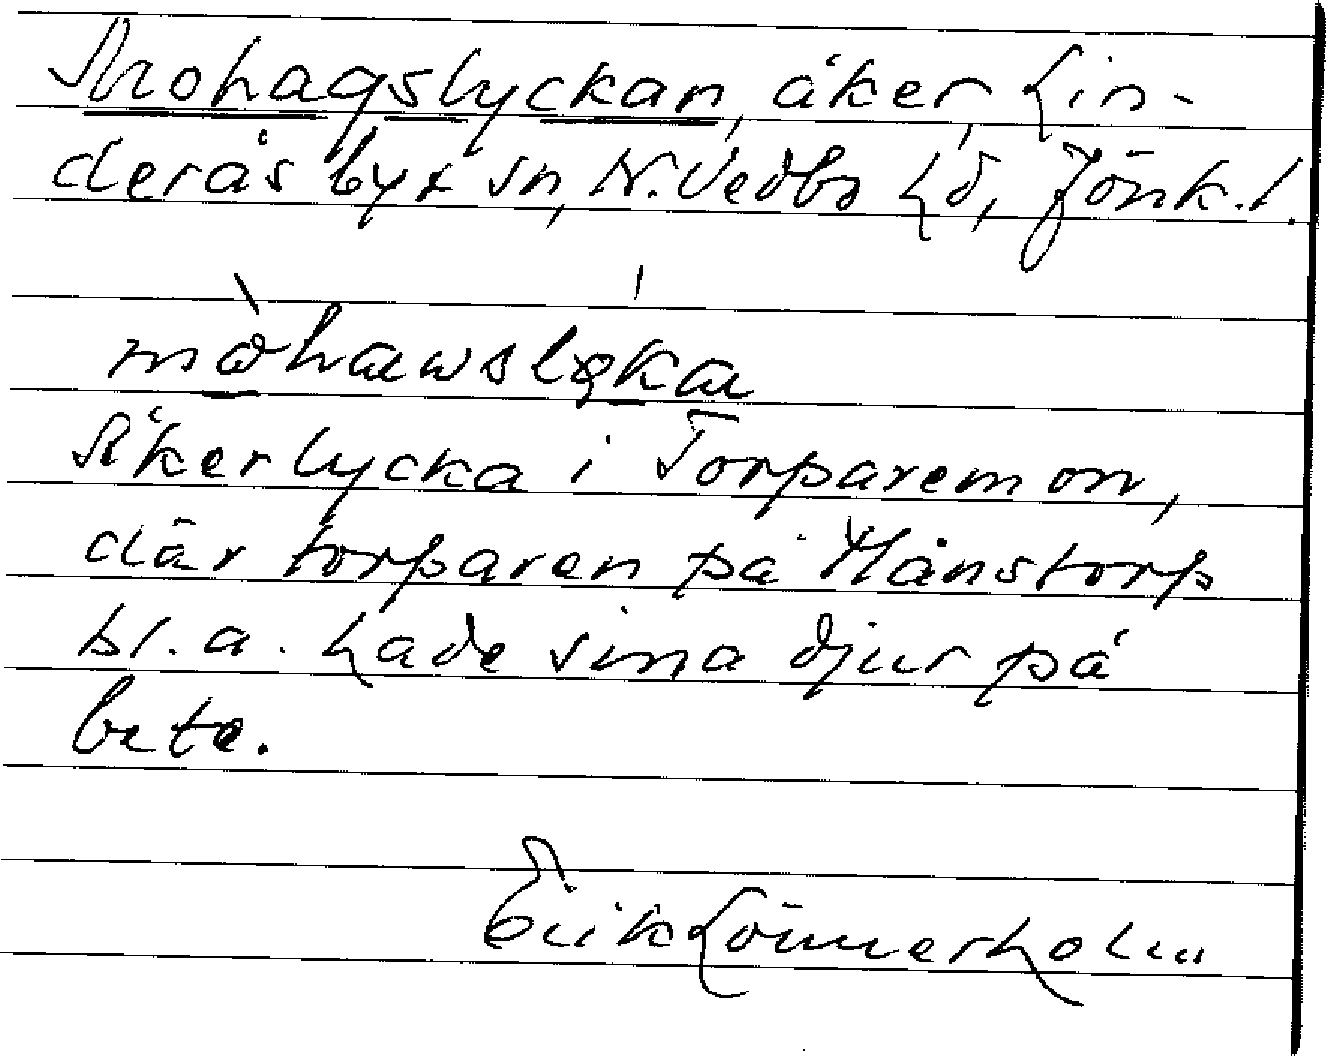 Mohagslyckan, åker, Lin-
derås by x sn, N. Vedbo hd, Jönk. l.
Åkerlycka i Torparemon,
där torparen på Månstorp
bl. a. hade sina djur på
bete.
Erik Lönnerholm